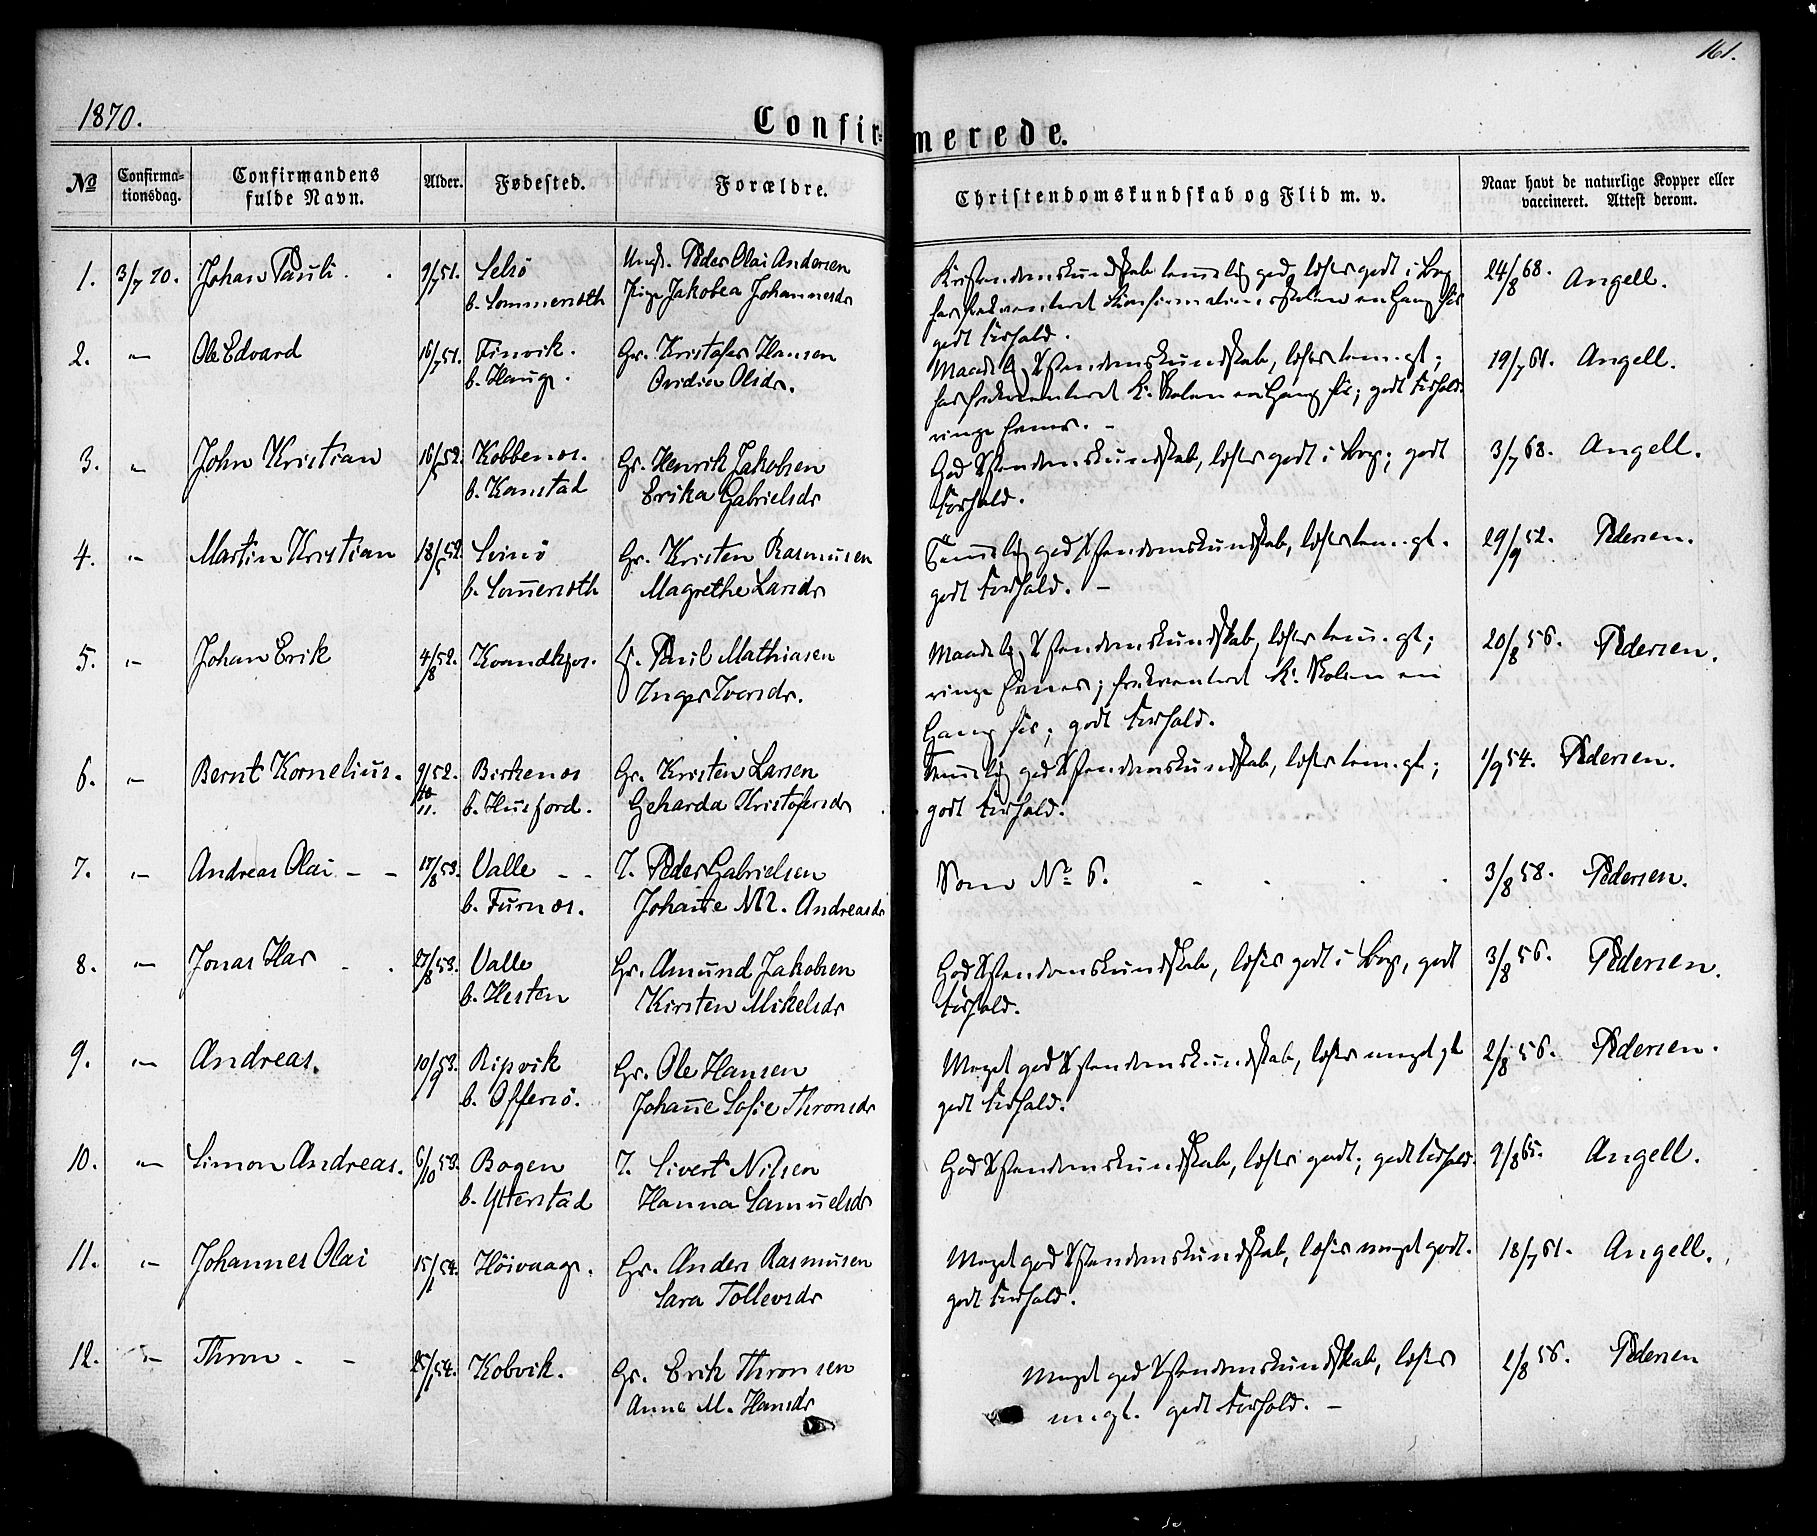 161.
1870.
Confirmerede.
No
Confirmationsdag.
Confirmandens fulde Navn.
Alder.
Fødested.
Forældre.
Christendomskundskab og Flid m. v.
Naar havt de naturlige Kopper eller vaccineret. Attest derom.
1. 3/7 70. Johan Pauli. 9/7 51. Selsö Ungk. Peder Olai Andersen Kristendomskundskab temmelig god, læser godt i Bog 24/8 68. Angell.
b. Sommersæth Pige Jakobea Johannesdr har frekventeret Konfirmationsskolen en Gang før
godt Forhold.
2. " Ole Edvard 16/7 51. Finvik. Gr. Kristofer Hansen Maadelig Xstendomskundskab, læser tem. gt; 19/7 61. Angell.
b. Haug. Ovidia Olsdr. har frekventeret K. Skolen en Gang før; godt Forhold.
ringe Evner. -
3. " John Kristian 16/5 52. Kobbenes. Gr. Henrik Jakobsen God Xstendomskundskab, læser godt i Bog; godt 3/7 68. Angell.
b. Kanstad Erika Gabrielsdr Forhold.
4. " Martin Kristian 18/5 52. Svinö Gr. Kristen Rasmusen Temmelig god Xstendomskundskab, læser tem. gt. 29/9 52. Pedersen.
b. Somersæth Magrethe Larsdr godt Forhold. -
5. " Johan Erik 4/8 52. Kvandkjos. f. Paul Mathiasen Maadelig Xstendomskundskab, læser tem. gt; 20/8 56. Pedersen.
Inger Iversdr. ringe Evner; frekventeret K. Skolen en
Gang før; godt Forhold.
6. " Bernt Kornelius. 9/10 52. Birkenes Gr. Kristen Larsen Temmelig god Xstendomskundskab, læser tem. gt; 1/9 54. Pedersen.
11. b. Husfjord. Geharda Kristofersdr godt Forhold.
7. " Andreas Olai - - 17/8 53. Valle - - I. Peder Gabrielsen Som No 6. 3/8 58. Pedersen.
b. Furnes. Johanne M. Andreasdr
8. " Jonas Har 27/8 53. Valle Gr. Amund Jakobsen God Xstendomskundskab, læser godt i Bog, godt 3/8 56. Pedersen.
b. Hesten Kirsten Mikelsdr Forhold.
9. " Andreas. 10/9 53. Ripvik Gr. Ole Hansen Meget god Xstendomskundskab, læser meget gt 2/8 56. Pedersen.
b. Offersö. Johanne Sofie Thronsdr godt Forhold.
10. " Simon Andreas. 6/10 53. Bogen I. Sivert Nilsen God Xstendomskundskab, læser godt; godt Forhold. 9/8 65. Angell.
b. Ytterstad Hanna Samuelsdr
11. " Johannes Olai 15/1 54. Höivaag. Gr. Anders Rasmusen Meget god Xstendomskundskab, læser meget godt. 18/7 61. Angell.
Sara Tollevsdr godt Forhold.
12. " Thron. - 25/1 54. Kobvik. Gr. Erik Thronsen Meget god Xstendomskundskab, læser 2/8 56. Pedersen
Anne M. Hansdr megt. godt Forhold. -